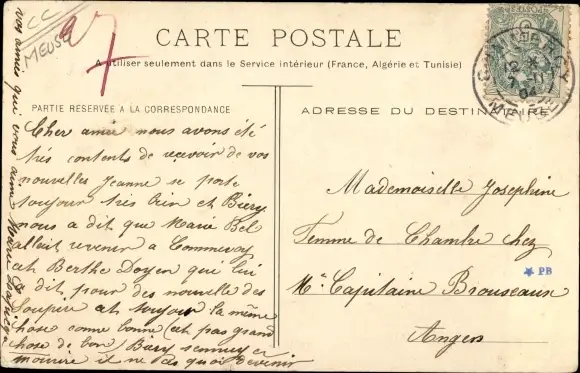 CC
MEUSE
27
CARTE POSTALE
A utiliser seulement dans le Service intérieur (France, Algérie et Tunisie)
PARTIE RÉSERVÉE A LA CORRESPONDANCE
ADRESSE DU DESTINATAIRE
Cher amie nous avons été
très contents de recevoir de vos
nouvelles Jeanne se porte
toujour très bien et Biéry
nous a dit que Marie Bel
allait revenir a Commercy
cet Berthe Doyen qui lui
a dit pour des nouvelle des
Soupire cet toujour la même
chose comme bonne (cet pas grand
chose de bon) Biéry sennuy en
mourire il ne sas quoi devenir
vos amie qui vous aime Marie
Mademoiselle Josephine
Femme de Chambre chez
Mr Capitaine Brouseaux
Angers
COMMERCY
7 - 11
04
MEUSE
PB